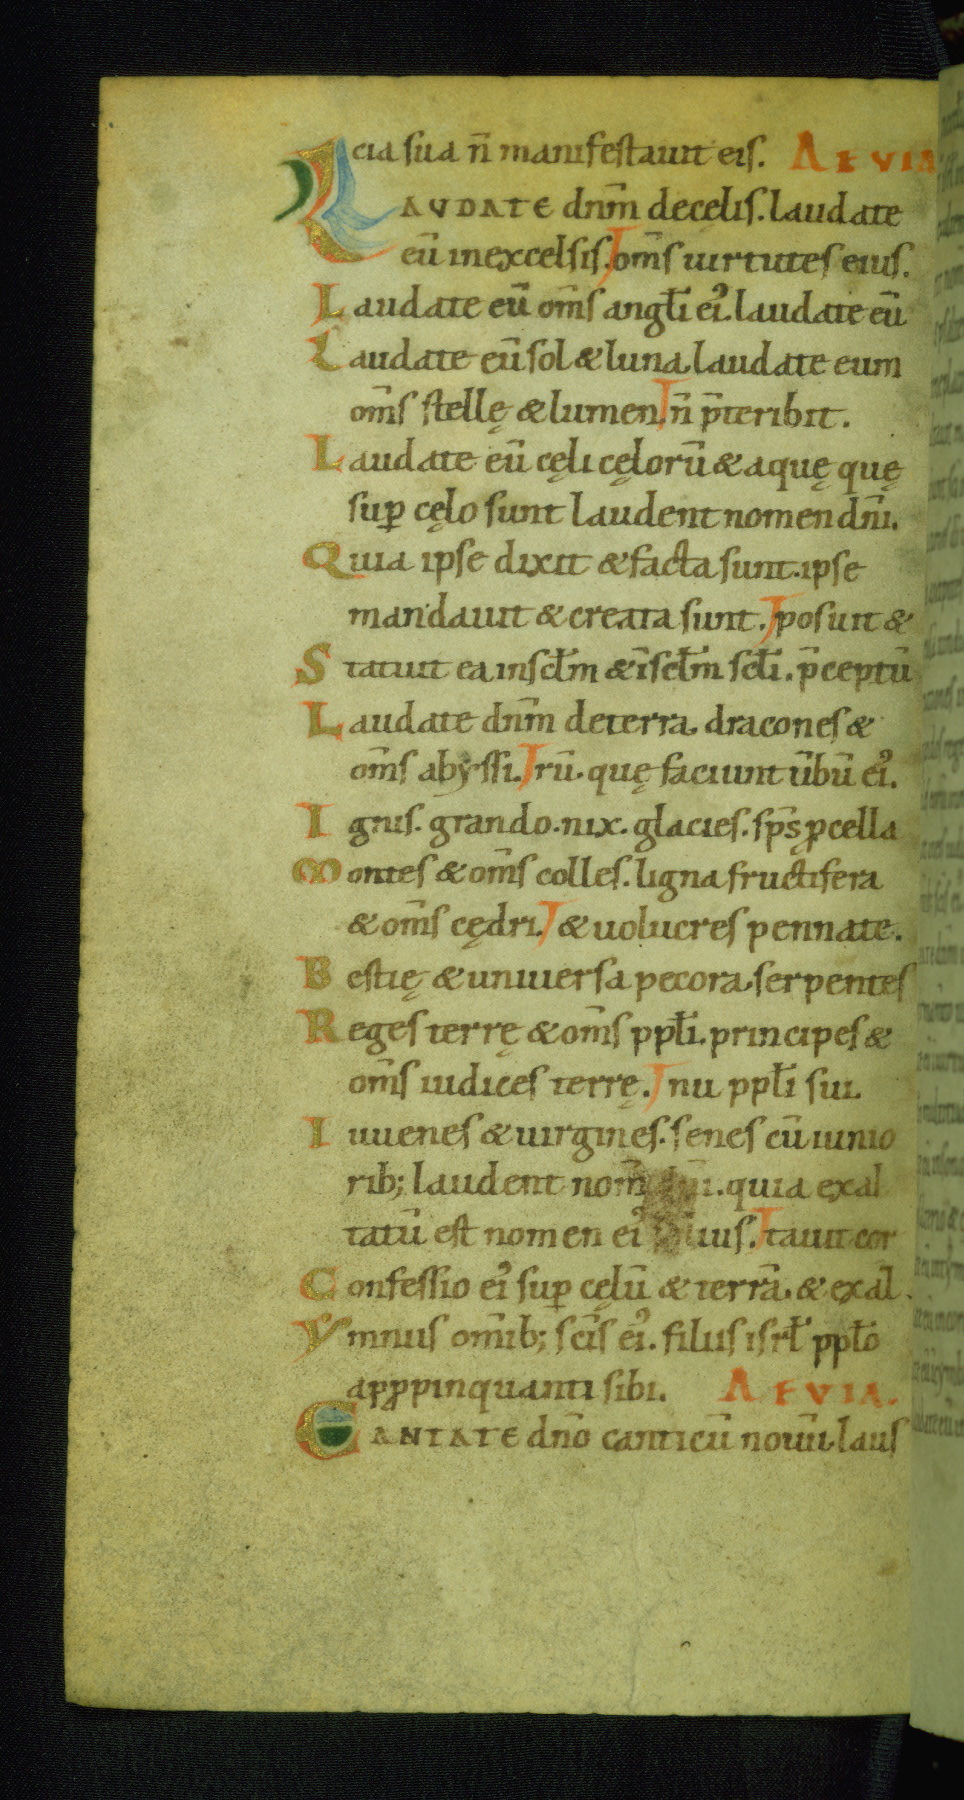 cia sua n̄ manifestauit eis. AEVIA
LAVDATE dnm̄ de celis. laudate
eū in excelsis. om̄s uirtutes eius.
Laudate eū om̄s angłi ei᾿. laudate eū
Laudate eū sol & luna. laudate eum
om̄s stellę & lumen. n̄ p̄teribit.
Laudate eū cęli cęlorū & aquę quę
sup̱ cęlo sunt laudent nomen dn̄i.
Quia ipse dixit & facta sunt. ipse
mandauit & creata sunt. posuit &
Statuit ea in scłm & ī scłm scłi. p̄ceptū
Laudate dnm̄ de terra. dracones &
om̄s abyssi. rū. quę faciunt ūbū ei᾿.
Ignis. grando. nix. glacies. sps̄ ꝓcella
Montes & om̄s colles. ligna fructifera
& om̄s cędri. & uolucres pennate.
Bestię & uniuersa pecora. serpentes
Reges terrę & om̄s ppłi. principes &
om̄s iudices terrę. nu ppłi sui.
Iuuenes & uirgines. senes cū iunio
rib; laudent nom̄ dn̄i. quia exal
tatū est nomen ei᾿ uius. tauit cor
Confessio ei᾿ sup̱ cęlū & terrā. & exal
Ymnus omīb; sc̄is ei᾿. filus isrł ppło
apꝓpinquanti sibi. AEVIA.
CANTATE dn̄o canticū nouū. laus